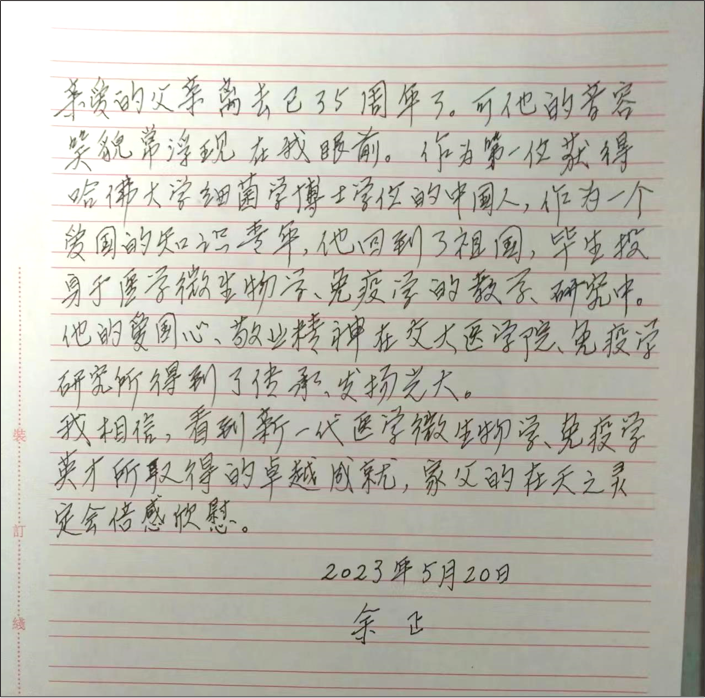 亲爱的父亲离去已35周年了。可他的音容
笑貌常浮现在我眼前。作为第一位获得
哈佛大学细菌学博士学位的中国人，作为一个
爱国的知识青年，他回到了祖国，毕生投
身于医学微生物学、免疫学的教学、研究中。
他的爱国心、敬业精神在交大医学院、免疫学
研究所得到了传承、发扬光大。
我相信，看到新一代医学微生物学、免疫学
英才所取得的卓越成就，家父的在天之灵
定会倍感欣慰。
2023年5月20日
余正
裝
訂
綫